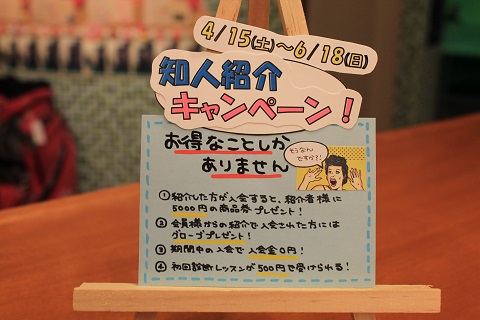 4/15(土)〜6/18(日)
知人紹介
キャンペーン!
お得なことしか
ありません
そうなん
ですか?!
① 紹介した方が入会すると、紹介者様に
5000円の商品券プレゼント!
② 会員様からの紹介で入会された方には
グローブプレゼント!
③ 期間中の入会で入会金0円!
④ 初回診断レッスンが500円で受けられる!